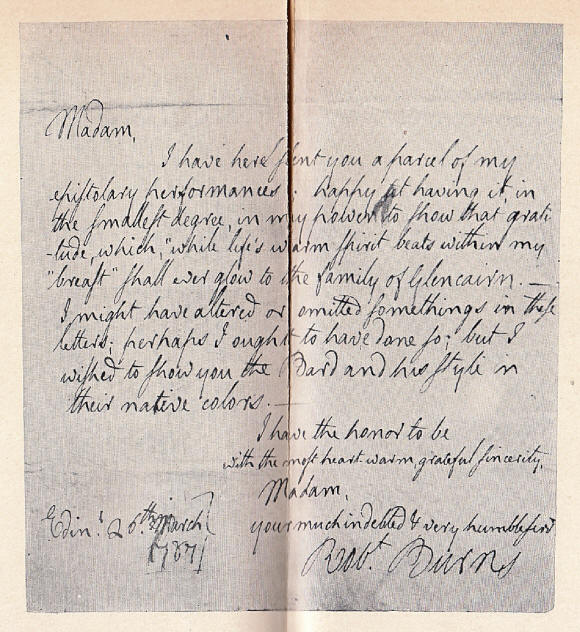 Madam,
I have here sent you a parcel of my
epistolary performances; happy at having it, in
the smallest degree, in my power to show that grati
-tude, which, "while life's warm spirit beats within my
"breast" shall ever glow to the family of Glencairn. —
I might have altered or omitted somethings in these
letters; perhaps I ought to have done so; but I
wished to show you the Bard and his style in
their native colors. —
I have the honor to be
with the most heart-warm, grateful sincerity,
Madam,
your much indebted & very humble servt
Edinr. 26th March
1787
Robt. Burns